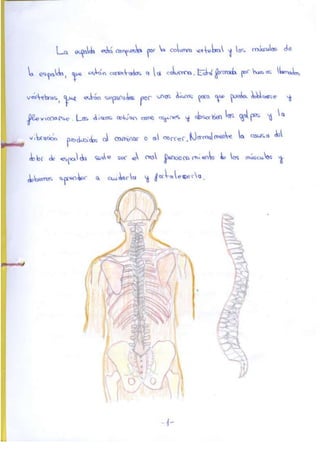 La espalda está compuesta por la columna vertebral y los músculos de
la espalda, que están conectados a la columna. Está formada por huesos llamados
vértebras, que están separadas por unos discos para que pueda doblarse y
flexionarse. Los discos actúan como cojines y absorben los golpes y la
vibración producidos al caminar o al correr. Normalmente la causa del
dolor de espalda suele ser el mal funcionamiento de los músculos y
debemos aprender a cuidarla y fortalecerla.
-1-